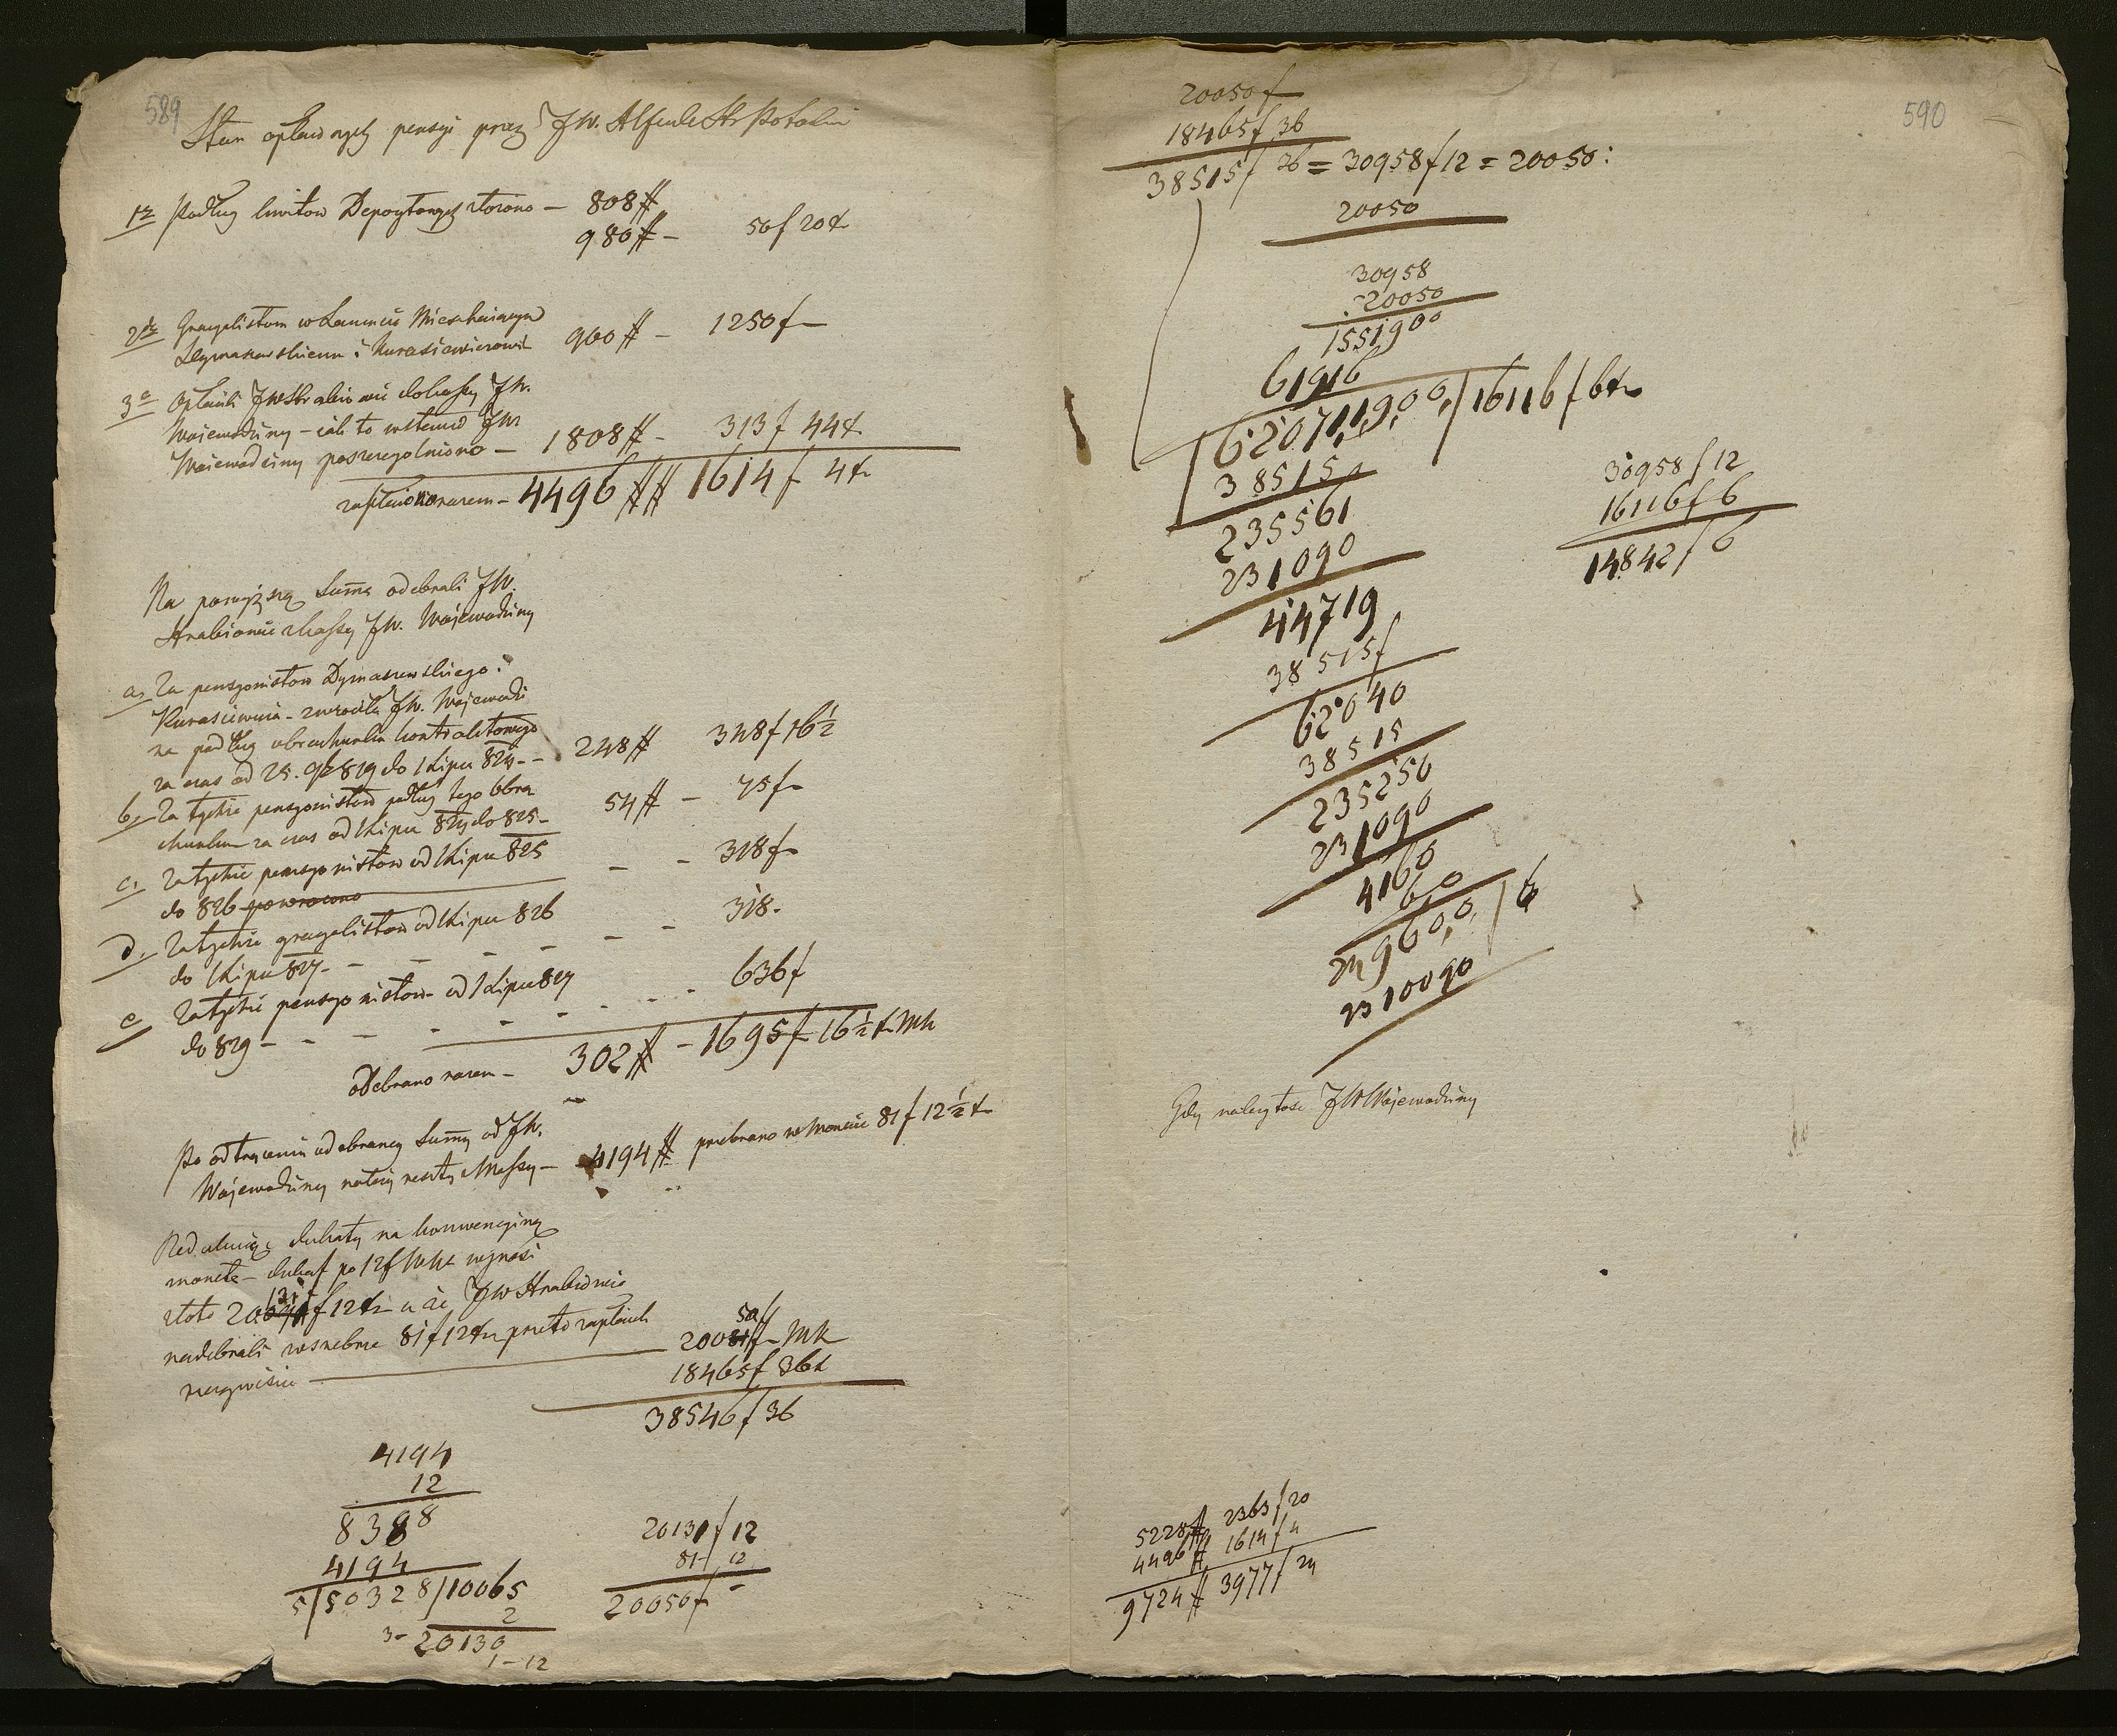 589
Stan opłaconych pensyi przez JW. Alfreda Hr Potockie
1º Podług kwitow Depozytowych złożono — 808 ##
980 ## — 50 f 20 x
2do Gracyalistom w Łancucie Mieszkaiącym
Dymaszewskiemu i Kurasiewiczowi 900 ## — 1250 f —
3o Opłacili JW Hrabiowie do kassy JW.
Wojewodziny — iak to w
Wojewodziny poszczegolniono — 1808 ## — 313 f 44 x
zapłacono razem — 4496 ## 1614 f 4 x
Na powyższą Summę odebrali JW.
Hrabiowie z kassy JW. Wojewodziny
a, Za pensyonistow Dymaszewskiego i
Kurasiewicza — zwrociła JW. Wojewodzi
na podług obrachunku kontraktowego
za czas od 25. 9br 819 do 1 Lipca 824 — — 248 ## 348 f 16 ½
b, Za tychże pensyonistow podług tego obra
chunku za czas od 1 Lipca 824 do 825 — 54 ## — 75 f —
c, Za tychże pensyonistow od 1 Lipca 825
do 826 powrocono — — 318 f —
d. Za tychże gracyalistow od 1 Lipca 826
do 1 Lipca 827 — — — — — — — 318.
e Za tychże pensyonistow — od 1 Lipca 827
do 829 — — — — — — — — 636 f
odebrano razem — 302 ## — 1695 f 16 ½ x Mk
Po odtrąceniu odebraney Summy od JW.
Wojewodziny należy reszty z Massy — 4194 ## przebrano w Monecie 81 f 12 ½ x
Redukuiąc dukaty na konwencyiną
monetę — dukat po 12 f wynosi
złoto 20131 f 12 x a że JW Hrabiowie
nadebrali w srebrze 81 f 12 x przeto zapłacili
rzeczywiście — 20050 f — Mk
18465 f 36 x
38546 f 36
4194
12
8388
4194
5 / 50328 / 10065
2
3 — 20130
1 — 12
20131 f 12
81 — 12
20050 f —
590
20050 f
18465 f 36
38515 f 36 = 30958 f 12 = 20050 :
20050
30958
20050
1551900
61916
620711900 / 16116 f 6 x
38515
235561
231090
44719
38515 f
62040
38515
235250
231090
4160
60
249600 / 6
2310090
30958 f 12
16116 f 6
14842 f 6
Gdy należytosc JW Wojewodziny
5228 ## 2363 f 20
4496 ## 1614 f 4
9724 ## 3977 f 24